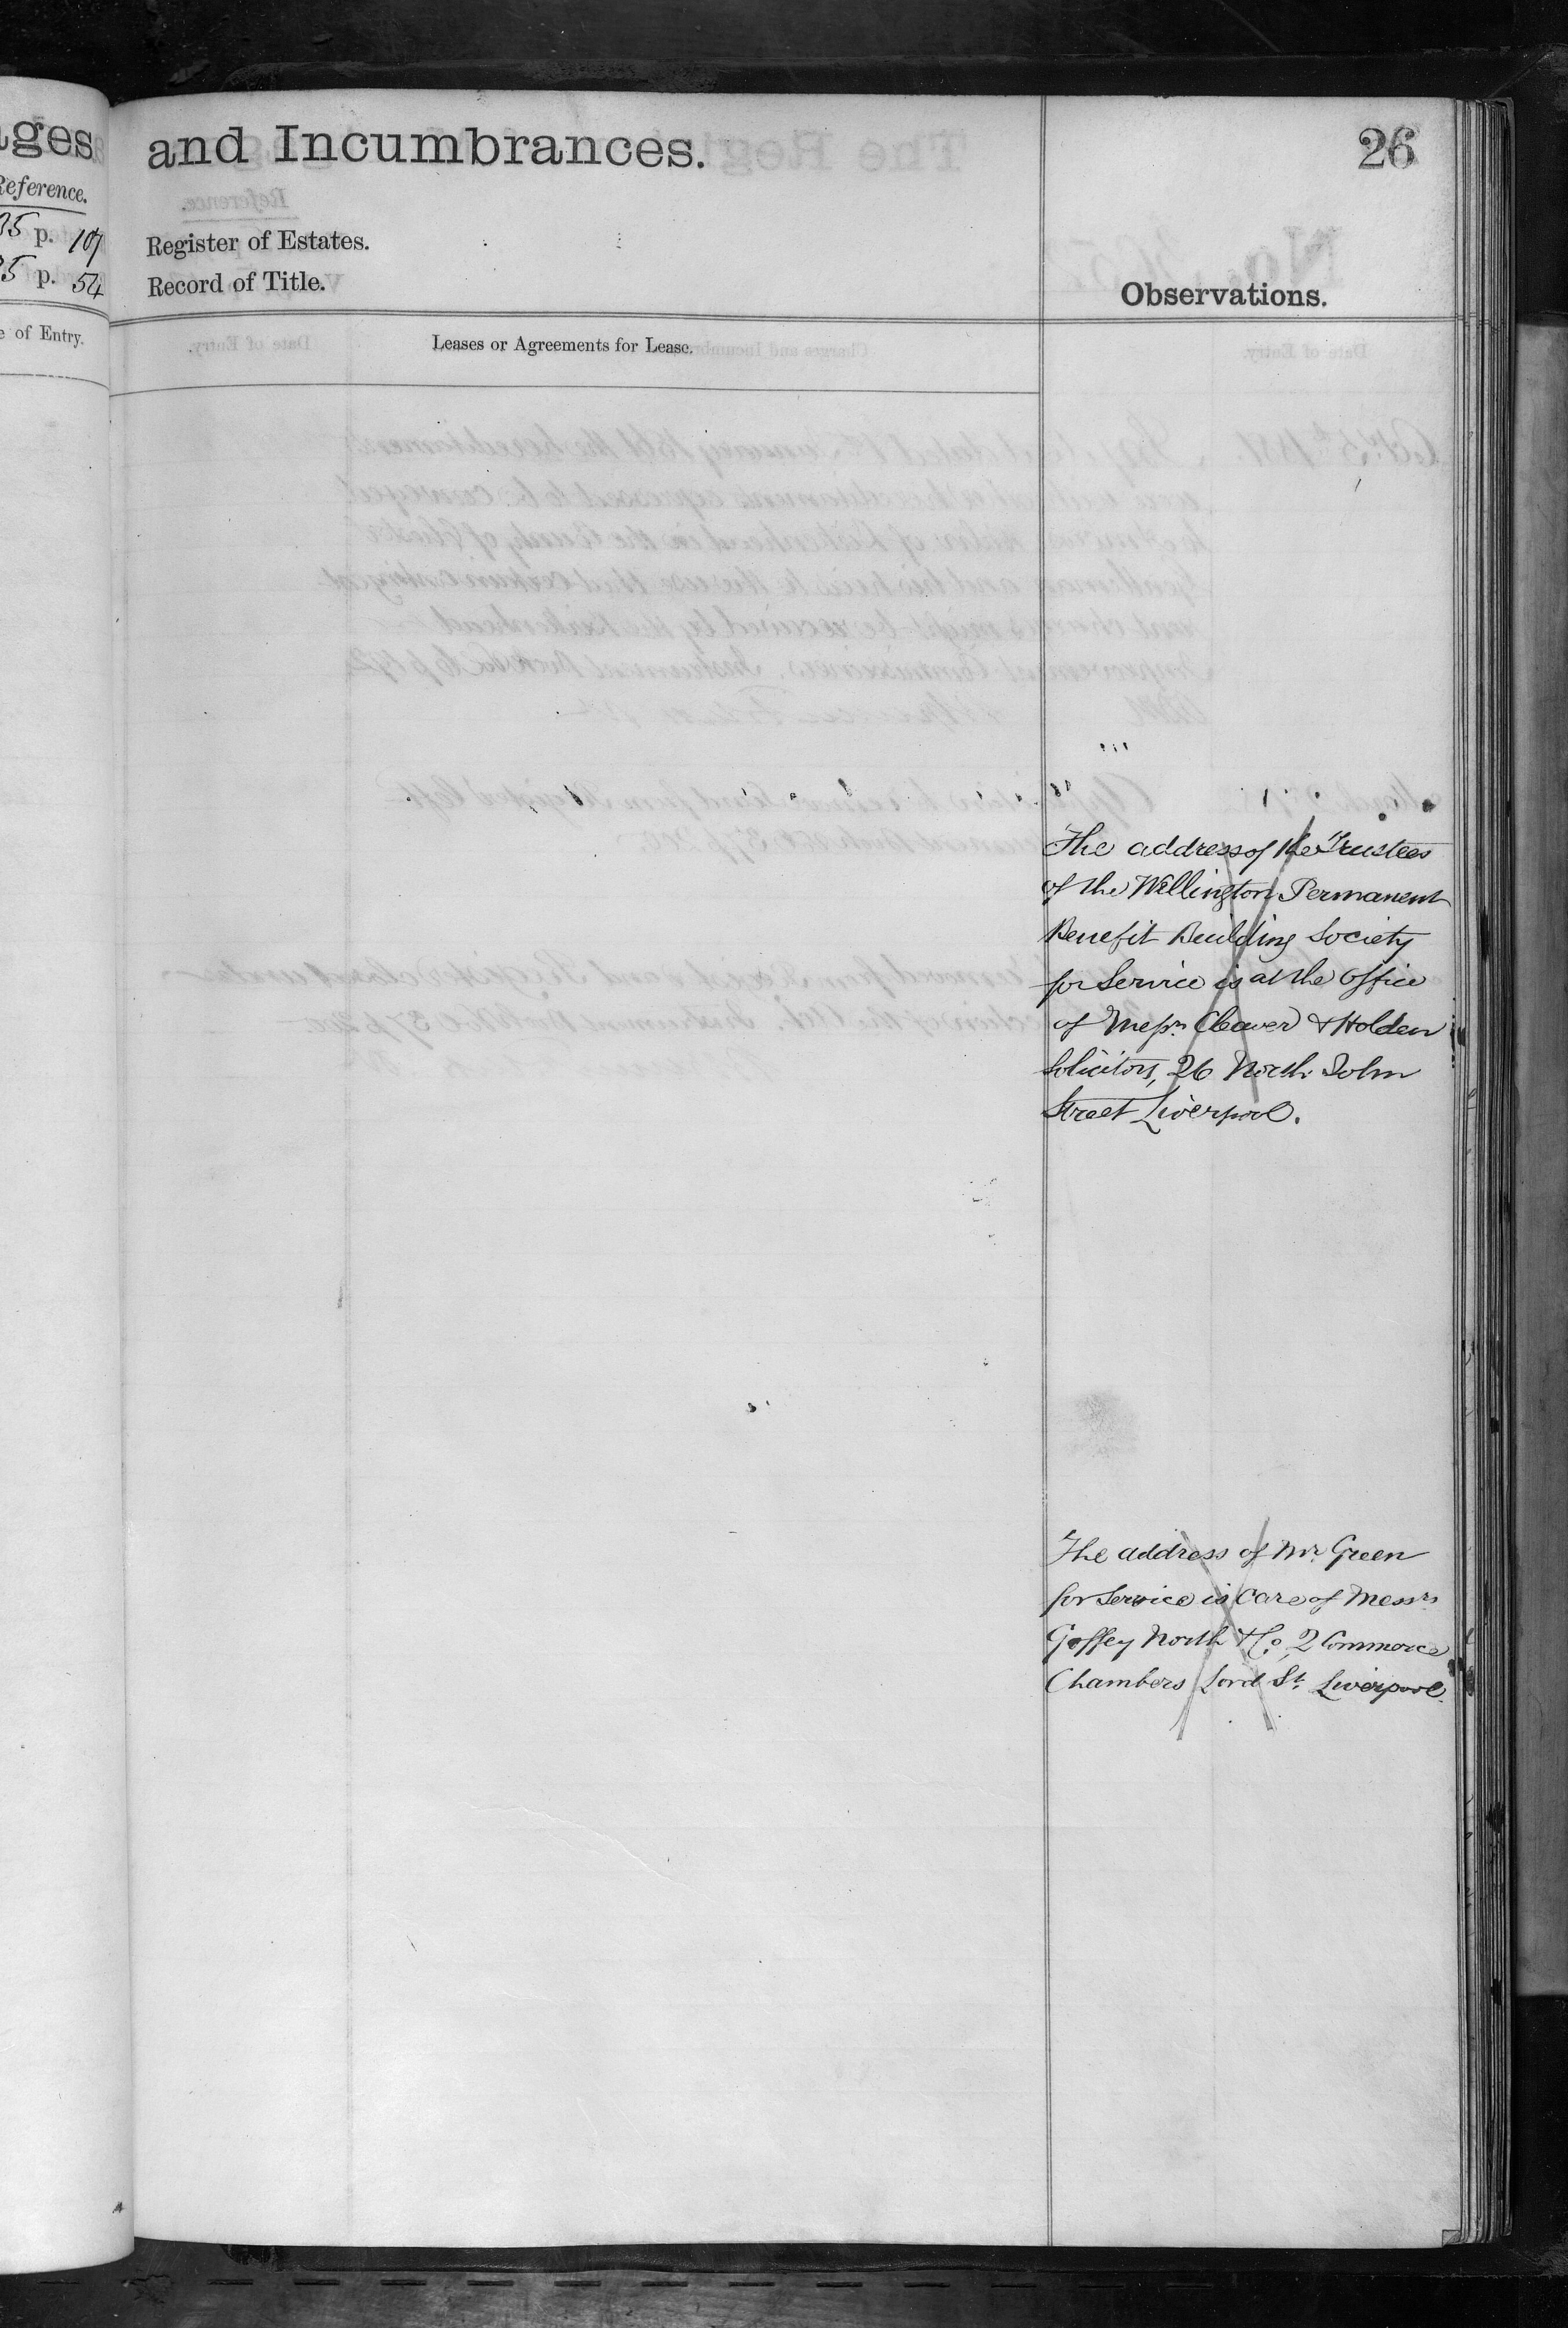 ages
Reference.
35 p. 107
35 p. 54
e of Entry.
and Incumbrances.
26
Register of Estates.
Record of Title.
Observations.
Leases or Agreements for Lease.
The address of the Trustees
of the Wellington Permanent
Benefit Building Society
for Service is at the Office
of Messrs Cleaver & Holden
Solicitors, 26 North John
Street Liverpool.
The address of Mr. Green
for Service is Care of Messrs
Goffey North & Co., 2 Commerce
Chambers Lord St. Liverpool